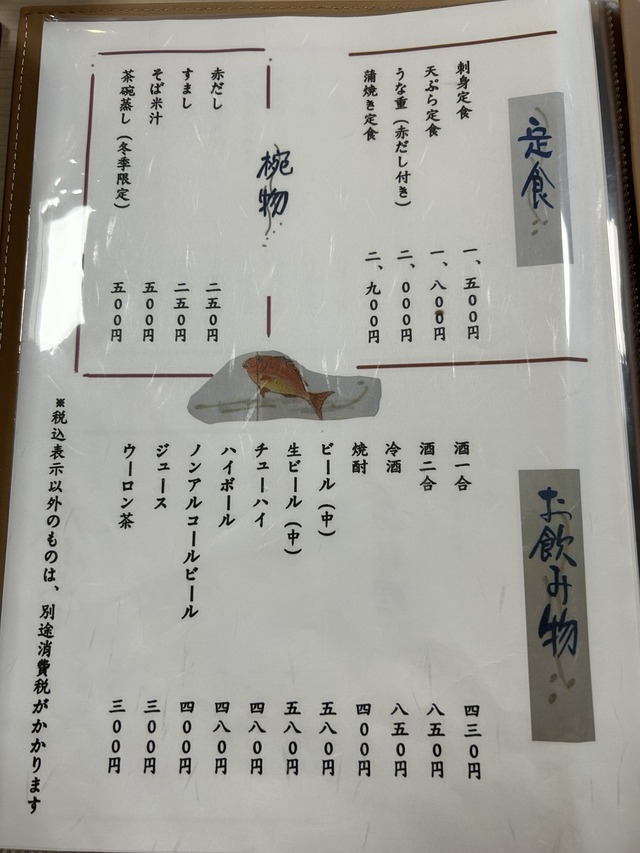 定食
刺身定食 一、五〇〇円
天ぷら定食 一、八〇〇円
うな重(赤だし付き) 二、〇〇〇円
蒲焼き定食 二、九〇〇円
椀物
赤だし 二五〇円
すまし 二五〇円
そば米汁 五〇〇円
茶碗蒸し(冬季限定) 五〇〇円
お飲み物
酒一合 四三〇円
酒二合 八五〇円
冷酒 八五〇円
焼酎 四〇〇円
ビール(中) 五八〇円
生ビール(中) 五八〇円
チューハイ 四八〇円
ハイボール 四八〇円
ノンアルコールビール 四〇〇円
ジュース 三〇〇円
ウーロン茶 三〇〇円
※税込表示以外のものは、別途消費税がかかります